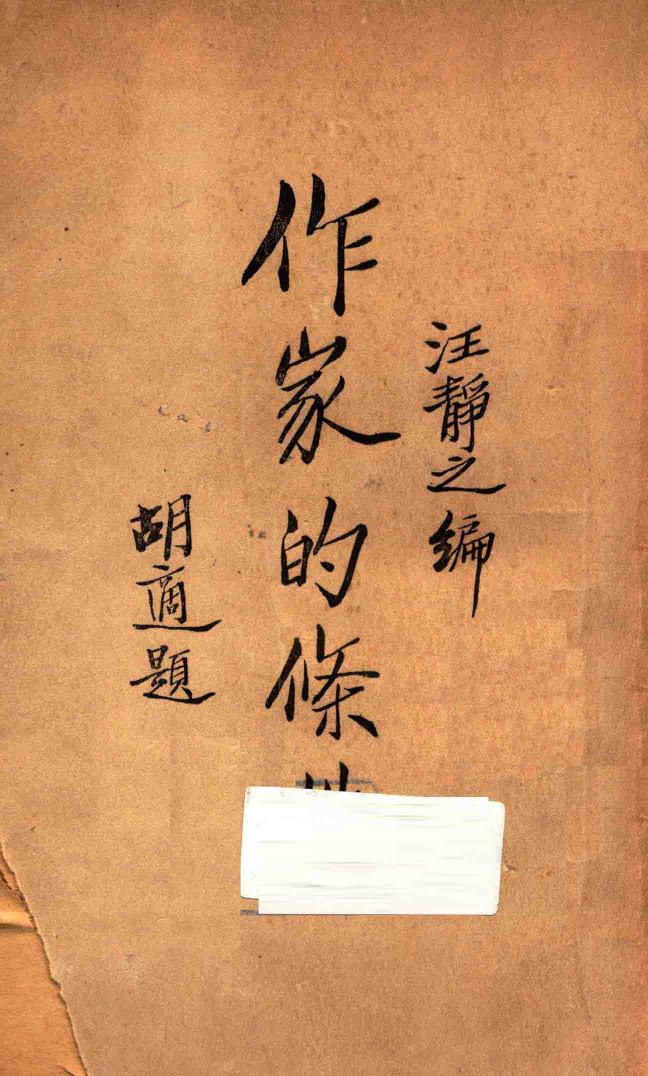 汪靜之編
作家的條
胡適題